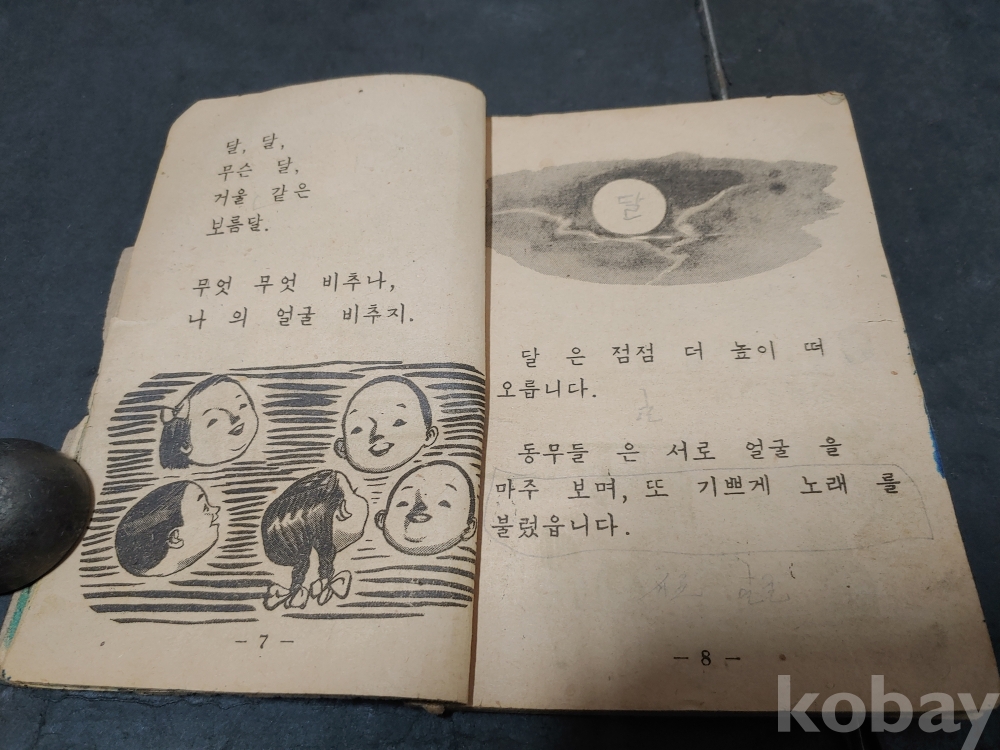 달, 달,
무슨 달,
거울 같은
보름달.
무엇 무엇 비추나,
나 의 얼굴 비추지.
— 7 —
달
달 은 점점 더 높이 떠
오릅니다.
동무들 은 서로 얼굴 을
마주 보며, 또 기쁘게 노래 를
불렀읍니다.
— 8 —
kobay